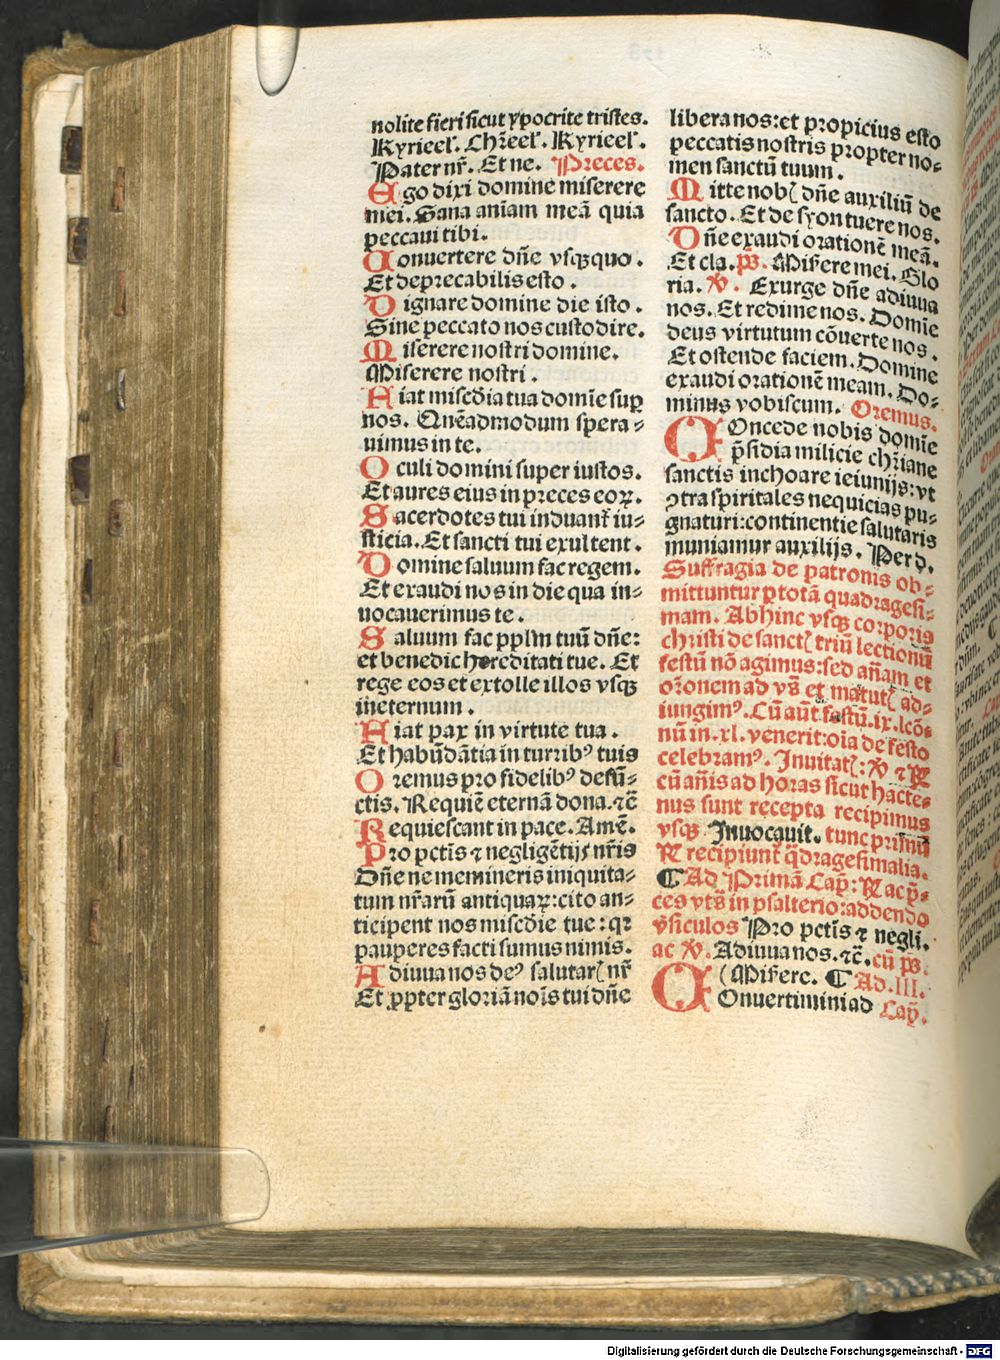 nolite fieri sicut ypocrite tristes.
Kyrieel'. Chr̄eel'. Kyrieel'.
Pater nr̄. Et ne. Preces.
Ego dixi domine miserere
mei. Sana anīam meā quia
peccaui tibi.
Conuertere dn̄e vsqꝫquo.
Et deprecabilis esto.
Dignare domine die isto.
Sine peccato nos custodire.
Miserere nostri domine.
Miserere nostri.
Fiat misc̄dia tua domīe suꝑ
nos. Quēadmodum spera-
uimus in te.
Oculi domini super iustos.
Et aures eius in preces eoꝝ.
Sacerdotes tui induant̄ iu-
sticia. Et sancti tui exultent.
Domine saluum fac regem.
Et exaudi nos in die qua in-
uocauerimus te.
Saluum fac ppl̄m tuū dn̄e:
et benedic hereditati tue. Et
rege eos et extolle illos vsqꝫ
ineternum.
Fiat pax in virtute tua.
Et habūdātia in turribꝰ tuis
Oremus pro fidelibꝰ defū-
ctis. Requiē eternā dona. ⁊c̄
Requiescant in pace. Amē.
Pro pctīs ⁊ negligētijs nr̄is
Dn̄e ne memineris iniquita-
tum nr̄arū antiquaꝝ: cito an-
ticipent nos misc̄die tue: qꝛ
pauperes facti sumus nimis.
Adiuua nos deꝰ salutarꝭ nr̄
Et ꝓpter gloriā noīs tui dn̄e
libera nos: et propicius esto
peccatis nostris propter no-
men sanctū tuum.
Mitte nobꝭ dn̄e auxiliū de
sancto. Et de syon tuere nos.
Dn̄e exaudi orationē meā.
Et cla. ps̄. Miserere mei. Glo
ria. V̄. Exurge dn̄e adiuua
nos. Et redime nos. Domīe
deus virtutum cōuerte nos.
Et ostende faciem. Domine
exaudi orationē meam. Do-
minus vobiscum. Oremus.
COncede nobis domīe
p̄sidia milicie chr̄iane
sanctis inchoare ieiunijs: vt
ꝯtra spiritales nequicias pu-
gnaturi: continentie salutaris
muniamur auxilijs. Per d.
Suffragia de patronis ob-
mittuntur ꝑ totā quadragesi-
mam. Abhinc vsqꝫ corporis
christi de sanctꝭ triū lectionū
festū nō agimus: sed an̄am et
or̄onem ad vs̄ et matutꝭ ad-
iungimꝰ. Cū aūt festū. ix. lcō-
nū in. xl. venerit: oīa de festo
celebramꝰ. Inuitatꝭ: V̄ ⁊ R̄
cū an̄is ad horas sicut hacte-
nus sunt recepta recipimus
vsqꝫ Inuocauit. tunc primū
R̄ recipiunt̄ q̄dragesimalia.
¶ Ad Primā Cap̄: R̄ ac p̄-
ces vts̄ in psalterio: addendo
v̄siculos Pro pctīs ⁊ negli.
ac V̄. Adiuua nos. ⁊c̄. cū ps̄.
(Misere. ¶ Ad. III.
COnuertimini ad Cap̄.
Digitalisierung gefördert durch die Deutsche Forschungsgemeinschaft - DFG